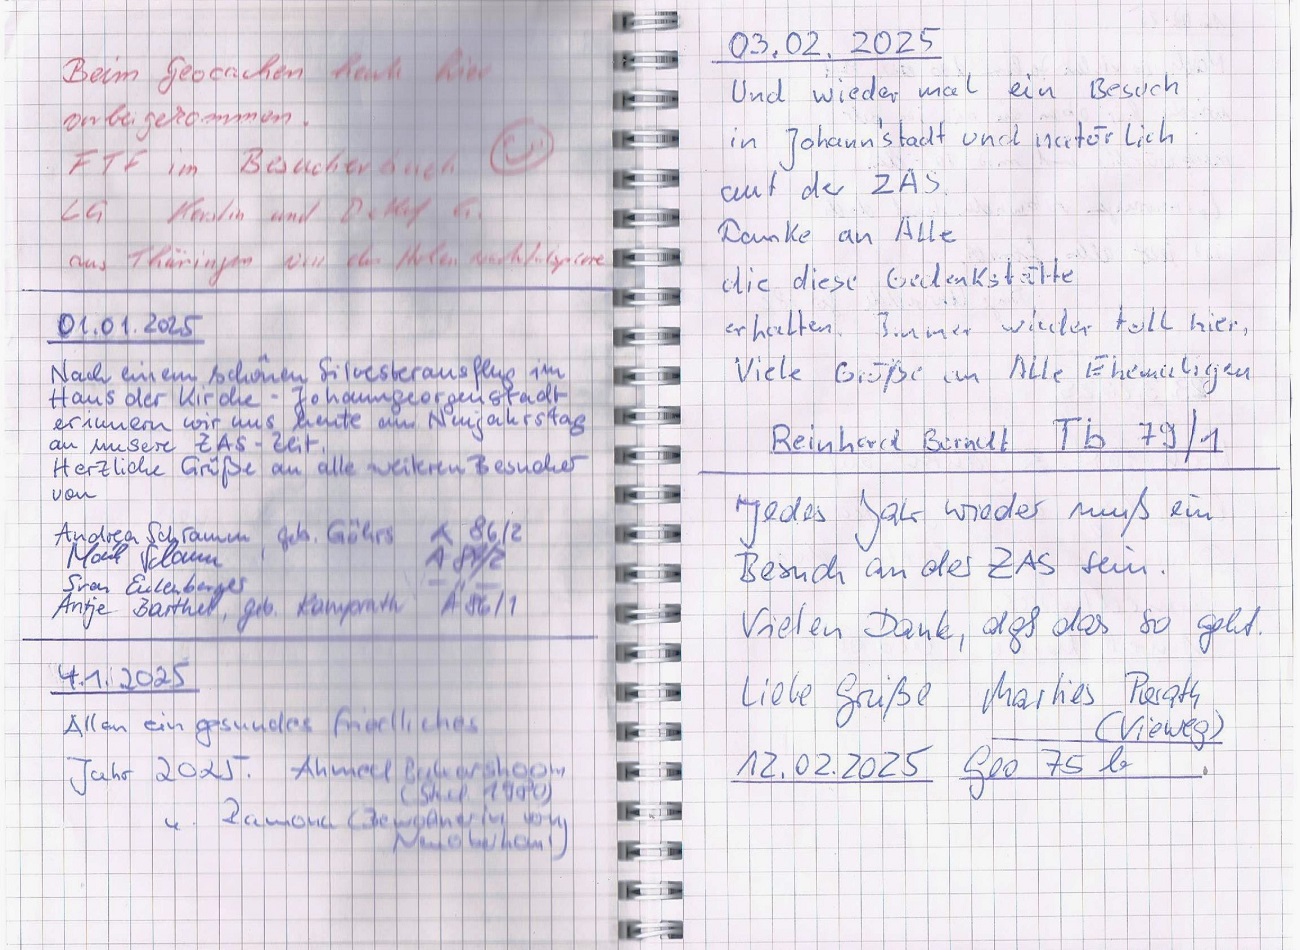 Beim Geocachen heute hier
vorbeigekommen.
FTF im Besucherbuch
LG Kerstin und Detlef
aus Thüringen
01.01.2025
Nach einem schönen Silvesterausflug im
Haus der Kirche - Johanngeorgenstadt
erinnern wir uns heute am Neujahrstag
an unsere ZAS-Zeit.
Herzliche Grüße an alle weiteren Besucher
von
Andrea Schramm, geb. Göhrs A 86/2
A 87/2
Sven Eulenberger -"-
Antje Barthel, geb. Kamprath A 86/1
4.1.2025
Allen ein gesundes friedliches
Jahr 2025. Ahmed
u. Ramona (Bewohnerin von
03.02.2025
Und wieder mal ein Besuch
in Johann'stadt und natürlich
auf der ZAS.
Danke an Alle
die diese Gedenkstätte
erhalten. Immer wieder toll hier,
Viele Grüße an Alle Ehemaligen
Reinhard Berndt Tb 79/1
Jedes Jahr wieder muß ein
Besuch an der ZAS sein.
Vielen Dank, daß das so geht.
Liebe Grüße Marlies
(Vieweg)
12.02.2025 Geo 75 b